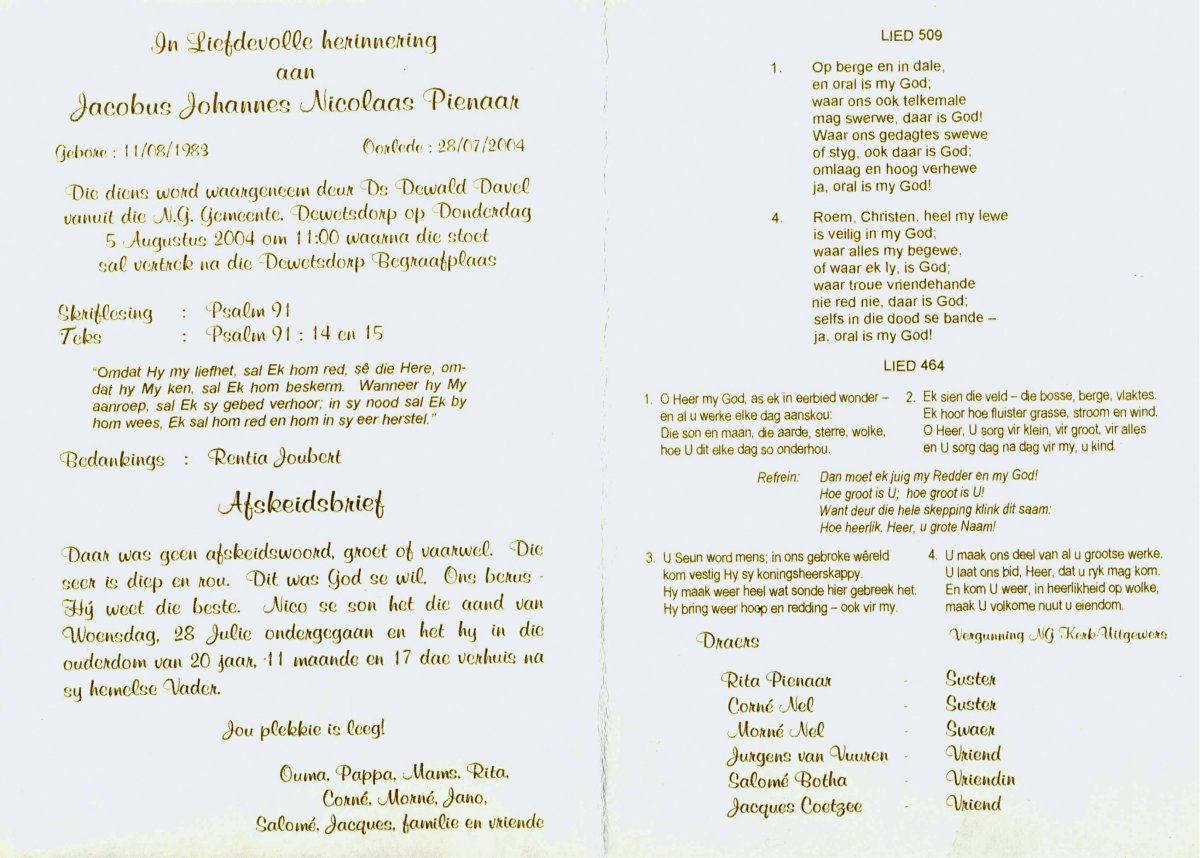 In Liefdevolle herinnering
aan
Jacobus Johannes Nicolaas Pienaar
Gebore : 11/08/1983 Oorlede : 28/07/2004
Die diens word waargeneem deur Ds Dewald Davel
vanuit die N.G. Gemeente, Dewetsdorp op Donderdag
5 Augustus 2004 om 11:00 waarna die stoet
sal vertrek na die Dewetsdorp Begraafplaas
Skriflesing : Psalm 91
Teks : Psalm 91 : 14 en 15
"Omdat Hy my liefhet, sal Ek hom red, sê die Here, om-
dat hy My ken, sal Ek hom beskerm. Wanneer hy My
aanroep, sal Ek sy gebed verhoor; in sy nood sal Ek by
hom wees, Ek sal hom red en hom in sy eer herstel."
Bedankings : Rentia Joubert
Afskeidsbrief
Daar was geen afskeidswoord, groet of vaarwel. Die
seer is diep en rou. Dit was God se wil. Ons berus -
Hý weet die beste. Nico se son het die aand van
Woensdag, 28 Julie ondergegaan en het hy in die
ouderdom van 20 jaar, 11 maande en 17 dae verhuis na
sy hemelse Vader.
Jou plekkie is leeg!
Ouma, Pappa, Mams, Rita,
Corné, Morné, Jano,
Salomé, Jacques, familie en vriende
LIED 509
1. Op berge en in dale,
en oral is my God;
waar ons ook telkemale
mag swerwe, daar is God!
Waar ons gedagtes swewe
of styg, ook daar is God;
omlaag en hoog verhewe
ja, oral is my God!
4. Roem, Christen, heel my lewe
is veilig in my God;
waar alles my begewe,
of waar ek ly, is God;
waar troue vriendehande
nie red nie, daar is God;
selfs in die dood se bande –
ja, oral is my God!
LIED 464
1. O Heer my God, as ek in eerbied wonder –
en al u werke elke dag aanskou:
Die son en maan, die aarde, sterre, wolke,
hoe U dit elke dag so onderhou.
2. Ek sien die veld – die bosse, berge, vlaktes.
Ek hoor hoe fluister grasse, stroom en wind.
O Heer, U sorg vir klein, vir groot, vir alles
en U sorg dag na dag vir my, u kind.
Refrein: Dan moet ek juig my Redder en my God!
Hoe groot is U; hoe groot is U!
Want deur die hele skepping klink dit saam:
Hoe heerlik, Heer, u grote Naam!
3. U Seun word mens; in ons gebroke wêreld
kom vestig Hy sy koningsheerskappy.
Hy maak weer heel wat sonde hier gebreek het.
Hy bring weer hoop en redding – ook vir my.
4. U maak ons deel van al u grootse werke.
U laat ons bid, Heer, dat u ryk mag kom.
En kom U weer, in heerlikheid op wolke,
maak U volkome nuut u eiendom.
Vergunning NG Kerk-Uitgewers
Draers
Rita Pienaar - Suster
Corné Nel - Suster
Morné Nel - Swaer
Jurgens van Vuuren - Vriend
Salomé Botha - Vriendin
Jacques Coetzee - Vriend